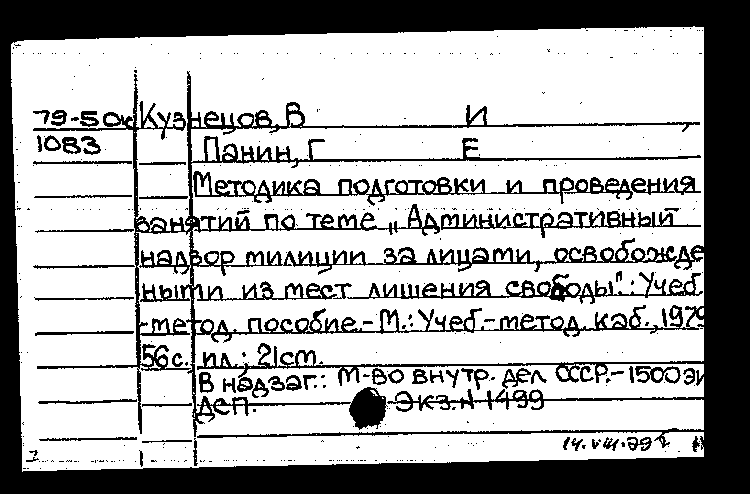 79-50к Кузнецов, В И ,
1083 Панин, Г Е
Методика подготовки и проведения
занятий по теме „Административный
надзор милиции за лицами, освобожде
ными из мест лишения свободы".: Учеб.
-метод. пособие.- М.: Учеб.-метод. каб., 1979
56с., ил.; 21см.
В надзаг.: М-во внутр. дел СССР.- 1500 эк
ДСП. Экз. N 1499
14.VIII.79